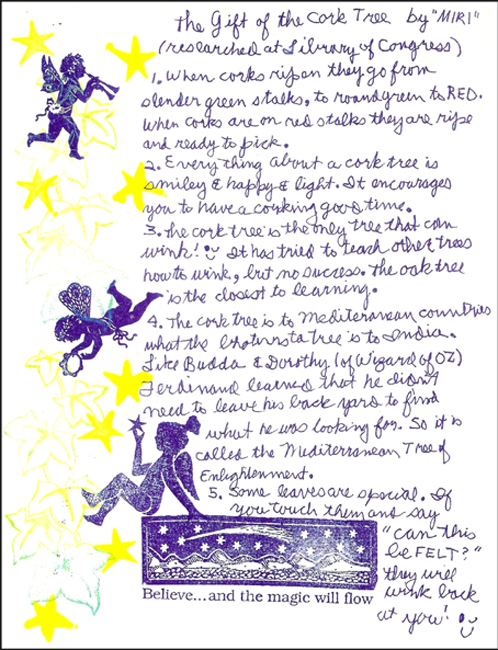 The Gift of the Cork Tree by "MIRI"
(researched at Library of Congress)
1. When corks ripen they go from
slender green stalks, to round green to RED.
When corks are on red stalks they are ripe
and ready to pick.
2. Everything about a cork tree is
smiley & happy & light. It encourages
you to have a corking good time.
3. The cork tree is the only tree that can
wink! It has tried to teach other trees
how to wink, but no success. The oak tree
is the closest to learning.
4. The cork tree is to Mediteranean countries
what the tree is to India.
Like Budda & Dorothy (of Wizard of OZ)
Ferdinand learned that he didn't
need to leave his back yard to find
what he was looking for. So it is
called the Mediterranean Tree of
Enlightenment.
5. Some leaves are special. If
you touch them and say
"can this
be FELT?"
they will
wink back
at you!
Believe...and the magic will flow